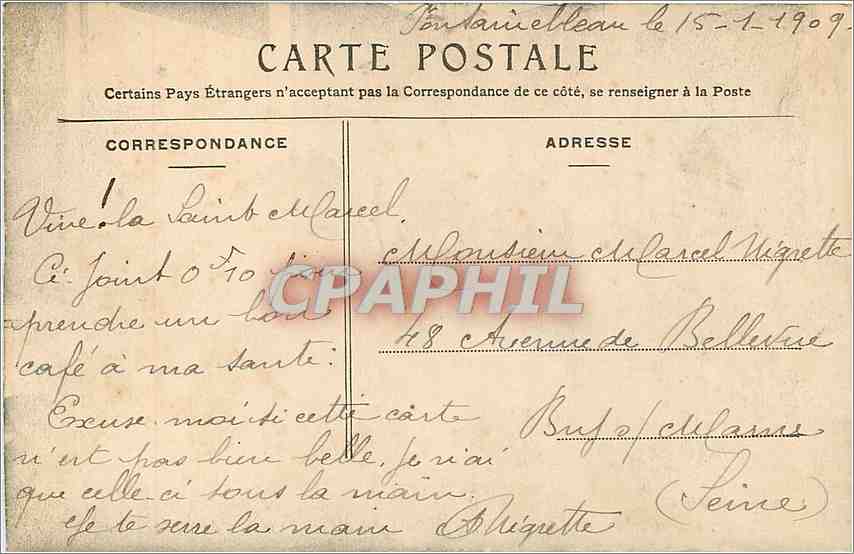 Fontainebleau le 15-1-1909.
CARTE POSTALE
Certains Pays Étrangers n'acceptent pas la Correspondance de ce côté, se renseigner à la Poste
CORRESPONDANCE
Vive! la Saint Marcel.
Ci-Joint 0F10
prendre un bon
café à ma santé.
Excuse-moi si cette carte
n'est pas bien belle. Je n'ai
que celle-ci sous la main.
Je te serre la main Négrette
ADRESSE
Monsieur Marcel Négrette
48 Avenue de Bellevue
Bry s/ Marne
(Seine)
CPAPHIL